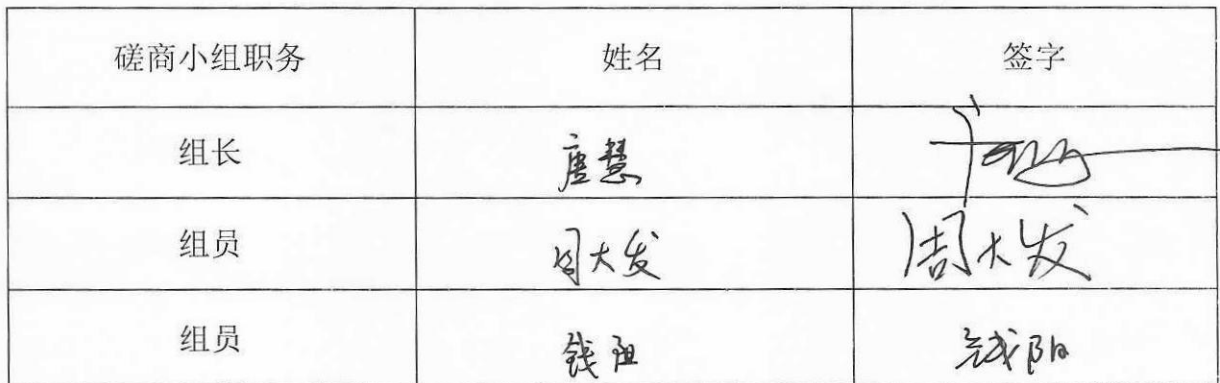 磋商小组职务 姓名 签字
组长 唐慧
组员 周大发 周大发
组员 钱阳 钱阳